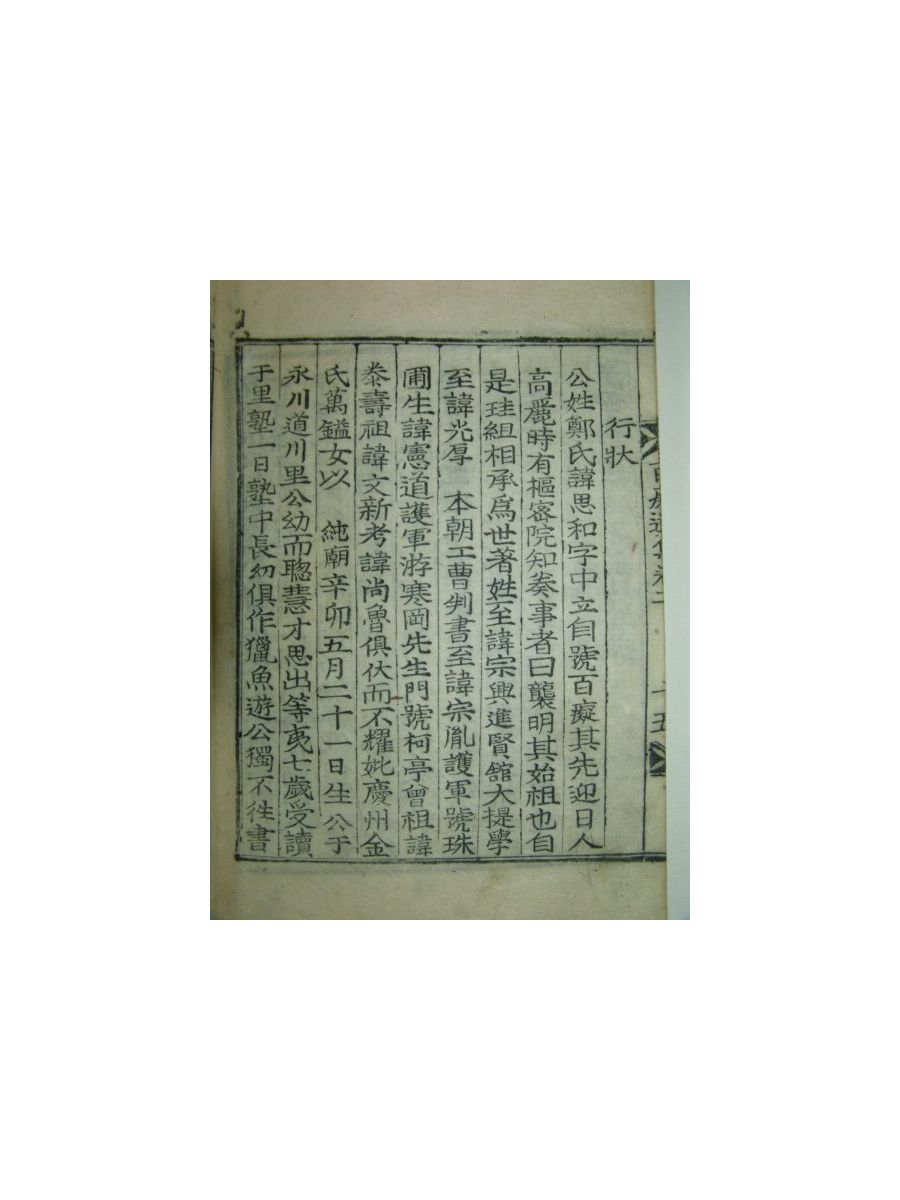 行狀
公姓鄭氏諱思和字中立自號百癡其先迎日人
高麗時有樞密院知奏事者曰襲明其始祖也自
是珪組相承爲世著姓至諱宗興進賢館大提學
至諱光厚 本朝工曹判書至諱宗胤護軍號珠
圃生諱憲道護軍游寒岡先生門號柯亭曾祖諱
泰壽祖諱文新考諱尚魯俱伏而不耀妣慶州金
氏萬鎰女以 純廟辛卯五月二十一日生公于
永川道川里公幼而聰慧才思出等夷七歲受讀
于里塾一日塾中長幼俱作獵魚遊公獨不徃書